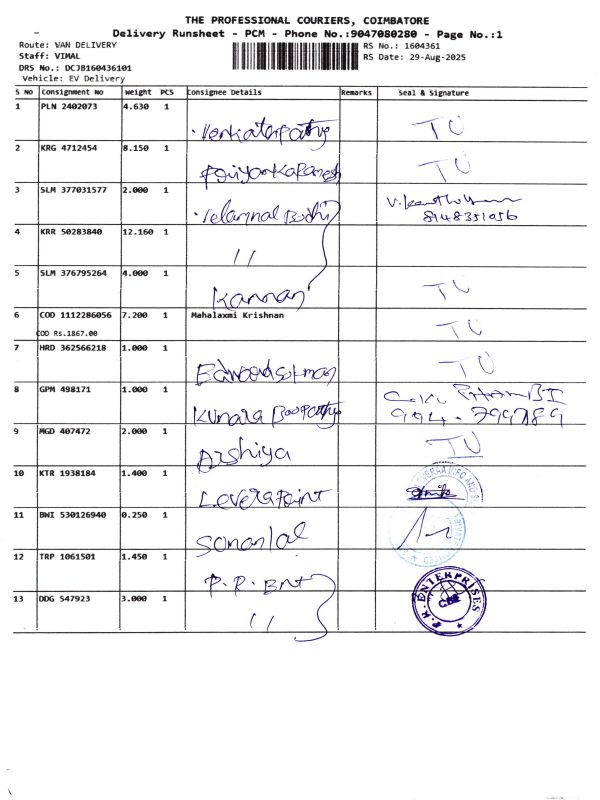 THE PROFESSIONAL COURIERS, COIMBATORE
Delivery Runsheet - PCM - Phone No.:9047080280 - Page No.:1
Route: VAN DELIVERY
RS No.: 1604361
Staff: VIMAL
RS Date: 29-Aug-2025
DRS No.: DCJB160436101
Vehicle: EV Delivery
S No Consignment No Weight PCS Consignee Details Remarks Seal & Signature
1 PLN 2402073 4.630 1 TU
2 KRG 4712454 8.150 1 TU
3 SLM 377031577 2.000 1
8148351056
4 KRR 50283840 12.160 1 //
5 SLM 376795264 4.000 1 Kannan TU
6 COD 1112286056 7.200 1 Mahalaxmi Krishnan TU
COD Rs.1867.00
7 HRD 362566218 1.000 1 TU
8 GPM 498171 1.000 1 Kumara Boopathy
9 MGD 407472 2.000 1 Arshiya TU
10 KTR 1938184 1.400 1 Leverapoint
11 BWI 530126940 0.250 1 Sonanlal
12 TRP 1061501 1.450 1
13 DDG 547923 3.000 1 //
P.R. ENTERPRISES
CBE